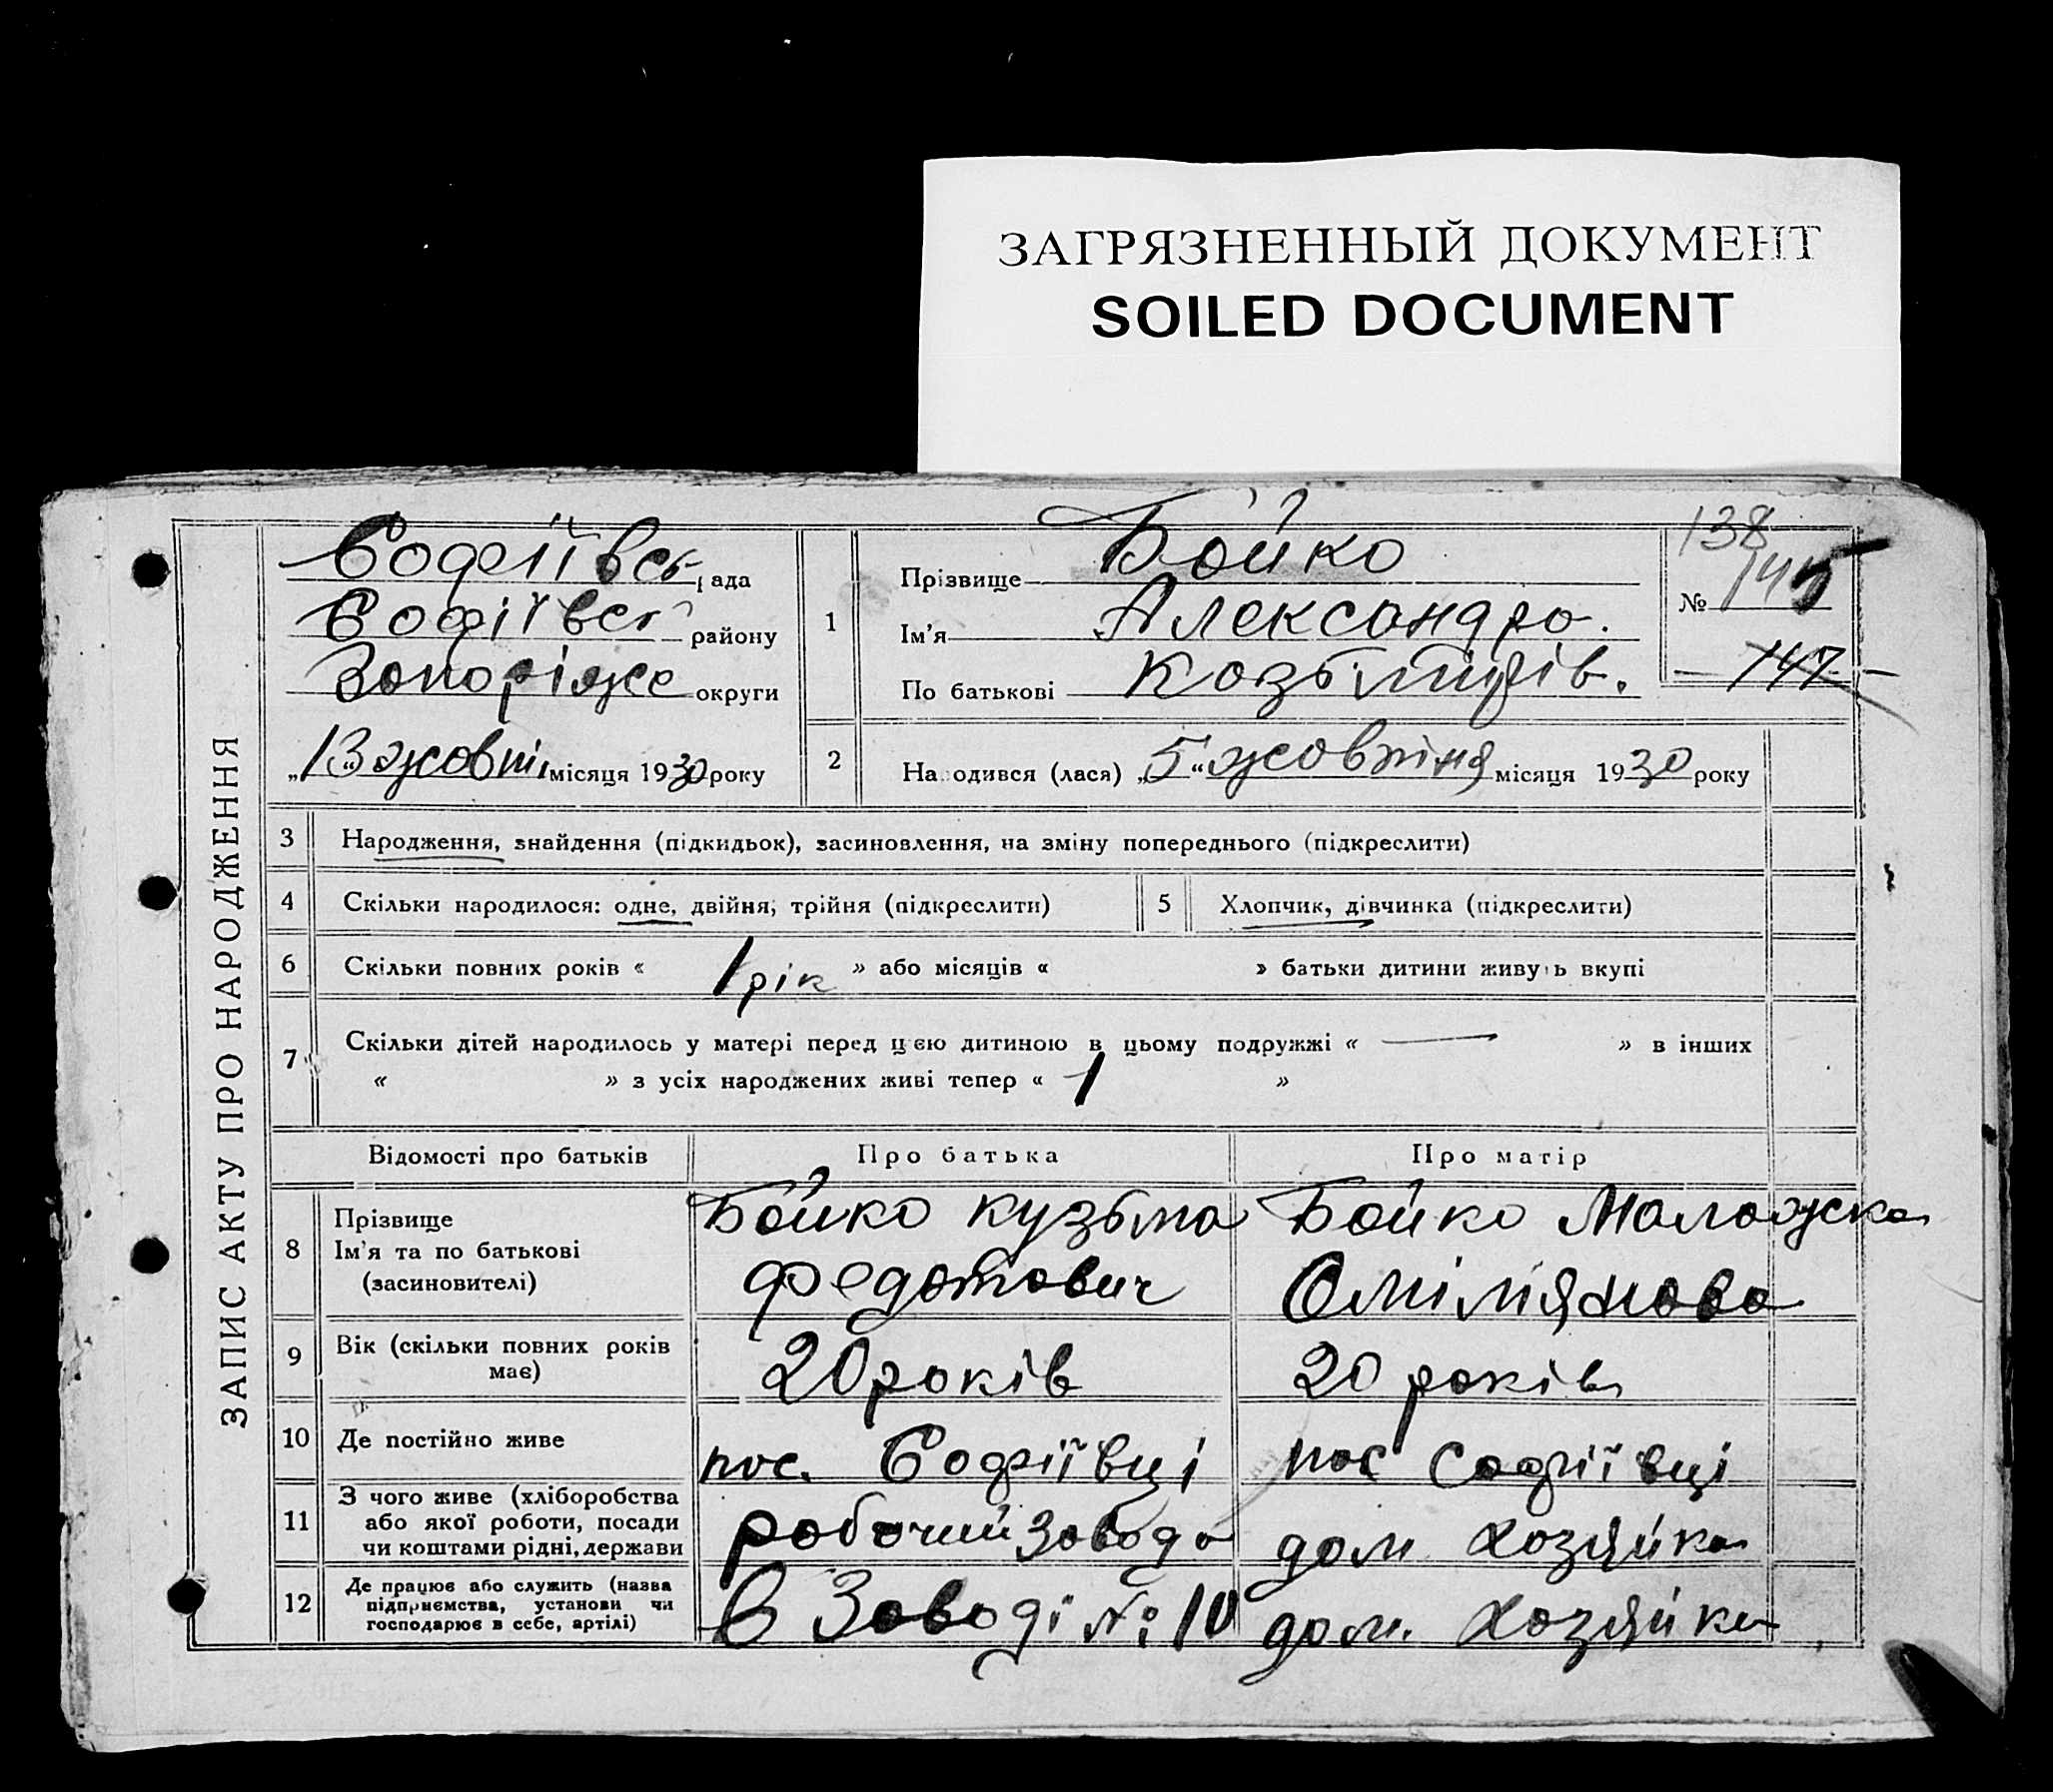 ЗАГРЯЗНЕННЫЙ ДОКУМЕНТ
SOILED DOCUMENT
ЗАПИС АКТУ ПРО НАРОДЖЕННЯ
Софіївсь рада
Софіївсь району
Запоріже округи
„13" жовтн місяця 1930 року
1
Прізвище Бойко
Ім'я Александра.
По батькові
138
№ 145
147
2
Народився (лася) „5" жовтня місяця 1930 року
3 Народження, знайдення (підкидьок), засиновлення, на зміну попереднього (підкреслити)
4 Скільки народилося: одне, двійня, трійня (підкреслити) 5 Хлопчик, дівчинка (підкреслити)
6 Скільки повних років « 1 рік » або місяців « » батьки дитини живуть вкупі
7 Скільки дітей народилось у матері перед цією дитиною в цьому подружжі « — » в інших
« » з усіх народжених живі тепер « 1 »
Відомості про батьків Про батька Про матір
8 Прізвище Ім'я та по батькові (засиновителі)
Бойко Кузьма Бойко
Федотович
9 Вік (скільки повних років має) 20 років 20 років
10 Де постійно живе пос. Софіївці пос Софіївці
11 З чого живе (хліборобства або якої роботи, посади чи коштами рідні, держави робочий завода дом хозяйка
12 Де працює або служить (назва підприємства, установи чи господарює в себе, артілі) в Заводі № 10 дом. хозяйка